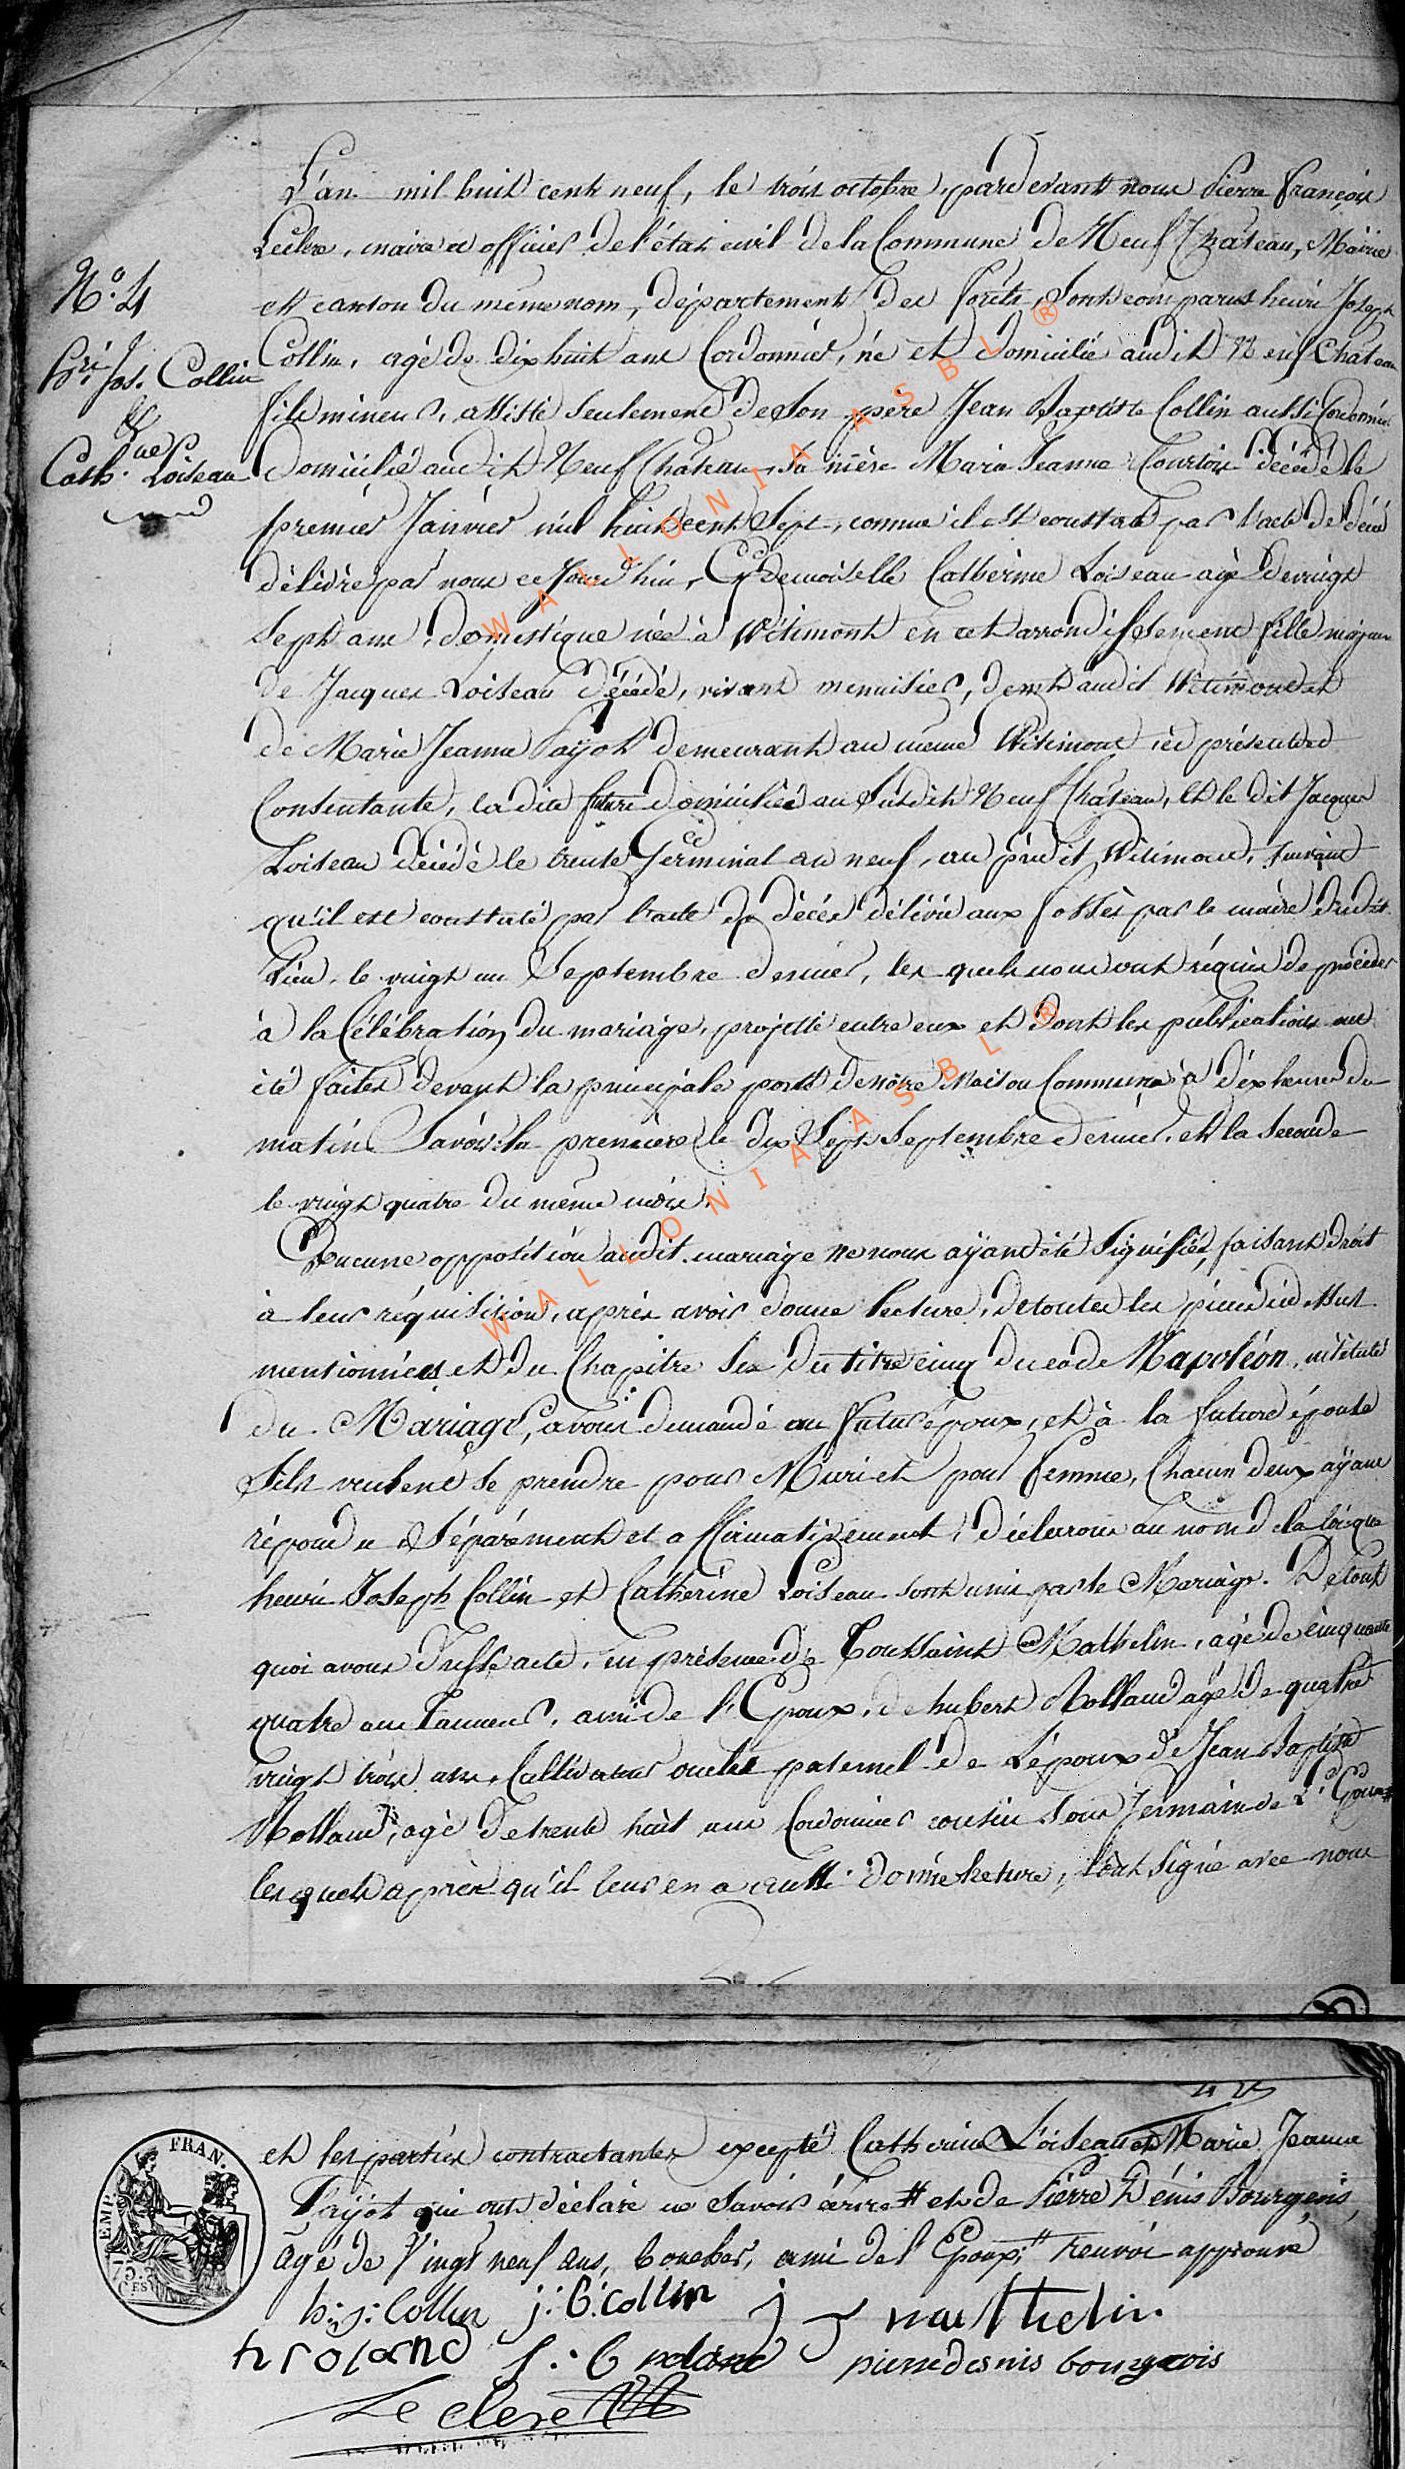 L'an mil huit cent neuf, le trois octobre, pardevant nous Pierre François
Leclere, maire et officier de l'état civil de la Commune de Neuf Château, Mairie
N.º 4
et canton du même nom, département des forêts, sont comparus henri Joseph
Collin, agé de dix huit ans Cordonnier, né et domicilié audit Neufchateau
hri Jos. Collin
&
Cath. Loiseau
fils mineur, assisté seulement de son père Jean Baptiste Collin aussi Cordonnier
domicilié audit Neuf Château, sa mère Marie Jeanne Courtois décédé le
premier Janvier mil huit cent sept, comme il est constaté par l'acte de décès
délivré par nous ce Jourd'hui, Et Demoiselle Catherine Loiseau agé de vingt
sept ans, domestique née à Witimont en cet arrondissement fille majeure
de Jacques Loiseau décédé, vivant menuisier, demt audit Witimont et
de Marie Jeanne Payot demeurant au même Witimont ici présente et
Consentante, la dite future domiciliée au susdit Neuf Château, Et le dit Jacques
Loiseau décédé le trente Germinal an neuf, au prédit Witimont, suivant
qu'il est constaté par l'acte de décès délivré aux fossés par le maire dudit
Lieu, le vingt un Septembre dernier, les quels nous ont réquis de procéder
à la Célébration du mariage, projetté entre eux et dont les publications ont
été faites devant la principale porte de nôtre Maison Commune à dix heures du
matin Savoir: la première le dix Sept Septembre dernier, et la Seconde
le vingt quatre du même mois.
Aucune opposition audit mariage ne nous ayant été signifiée, faisant droit
à leur réquisition, après avoir donné lecture, de toutes les pièces ci dessus
mentionnées et du Chapitre six du titre cinq du code Napoléon, intitulé
du Mariage, avons demandé au futur époux, et à la future épouse
s'ils veulent se prendre pour Mari et pour femme, Chacun deux ayant
répondu séparément et affirmativement, déclarons au nom de la loi que
henri Joseph Collin et Catherine Loiseau sont unis par le Mariage. De tout
quoi avons dressé acte, en présence de Toussaint Mathelin, agé de cinquante
quatre ans Tanneur, ami de l'Epoux, de hubert Rolland agé de quatre
vingt trois ans, Cultivateur oncle paternel de L'époux de Jean Baptiste
Rolland, agé de trente huit ans Cordonnier cousin sous Germain de L'Epoux #
les quels après qu'il leur en a aussi donné lecture, l'ont signé avec nous
et les parties contractantes excepté Catherine L'oiseau et Marie Jeanne
Payot qui ont déclaré ne savoir écrire # et de Pierre Dénis Bourgeois,
agé de Vingt neuf ans, boucher, ami de l'Epoux, # renvoi approuvé
EMP. FRAN.
75. Ces
h: j: Collin j: b: collin
j mathelin
h roland j: b roland pierre desnis bourgeois
Le clere
WALLONIA ASBL ®
WALLONIA ASBL ®